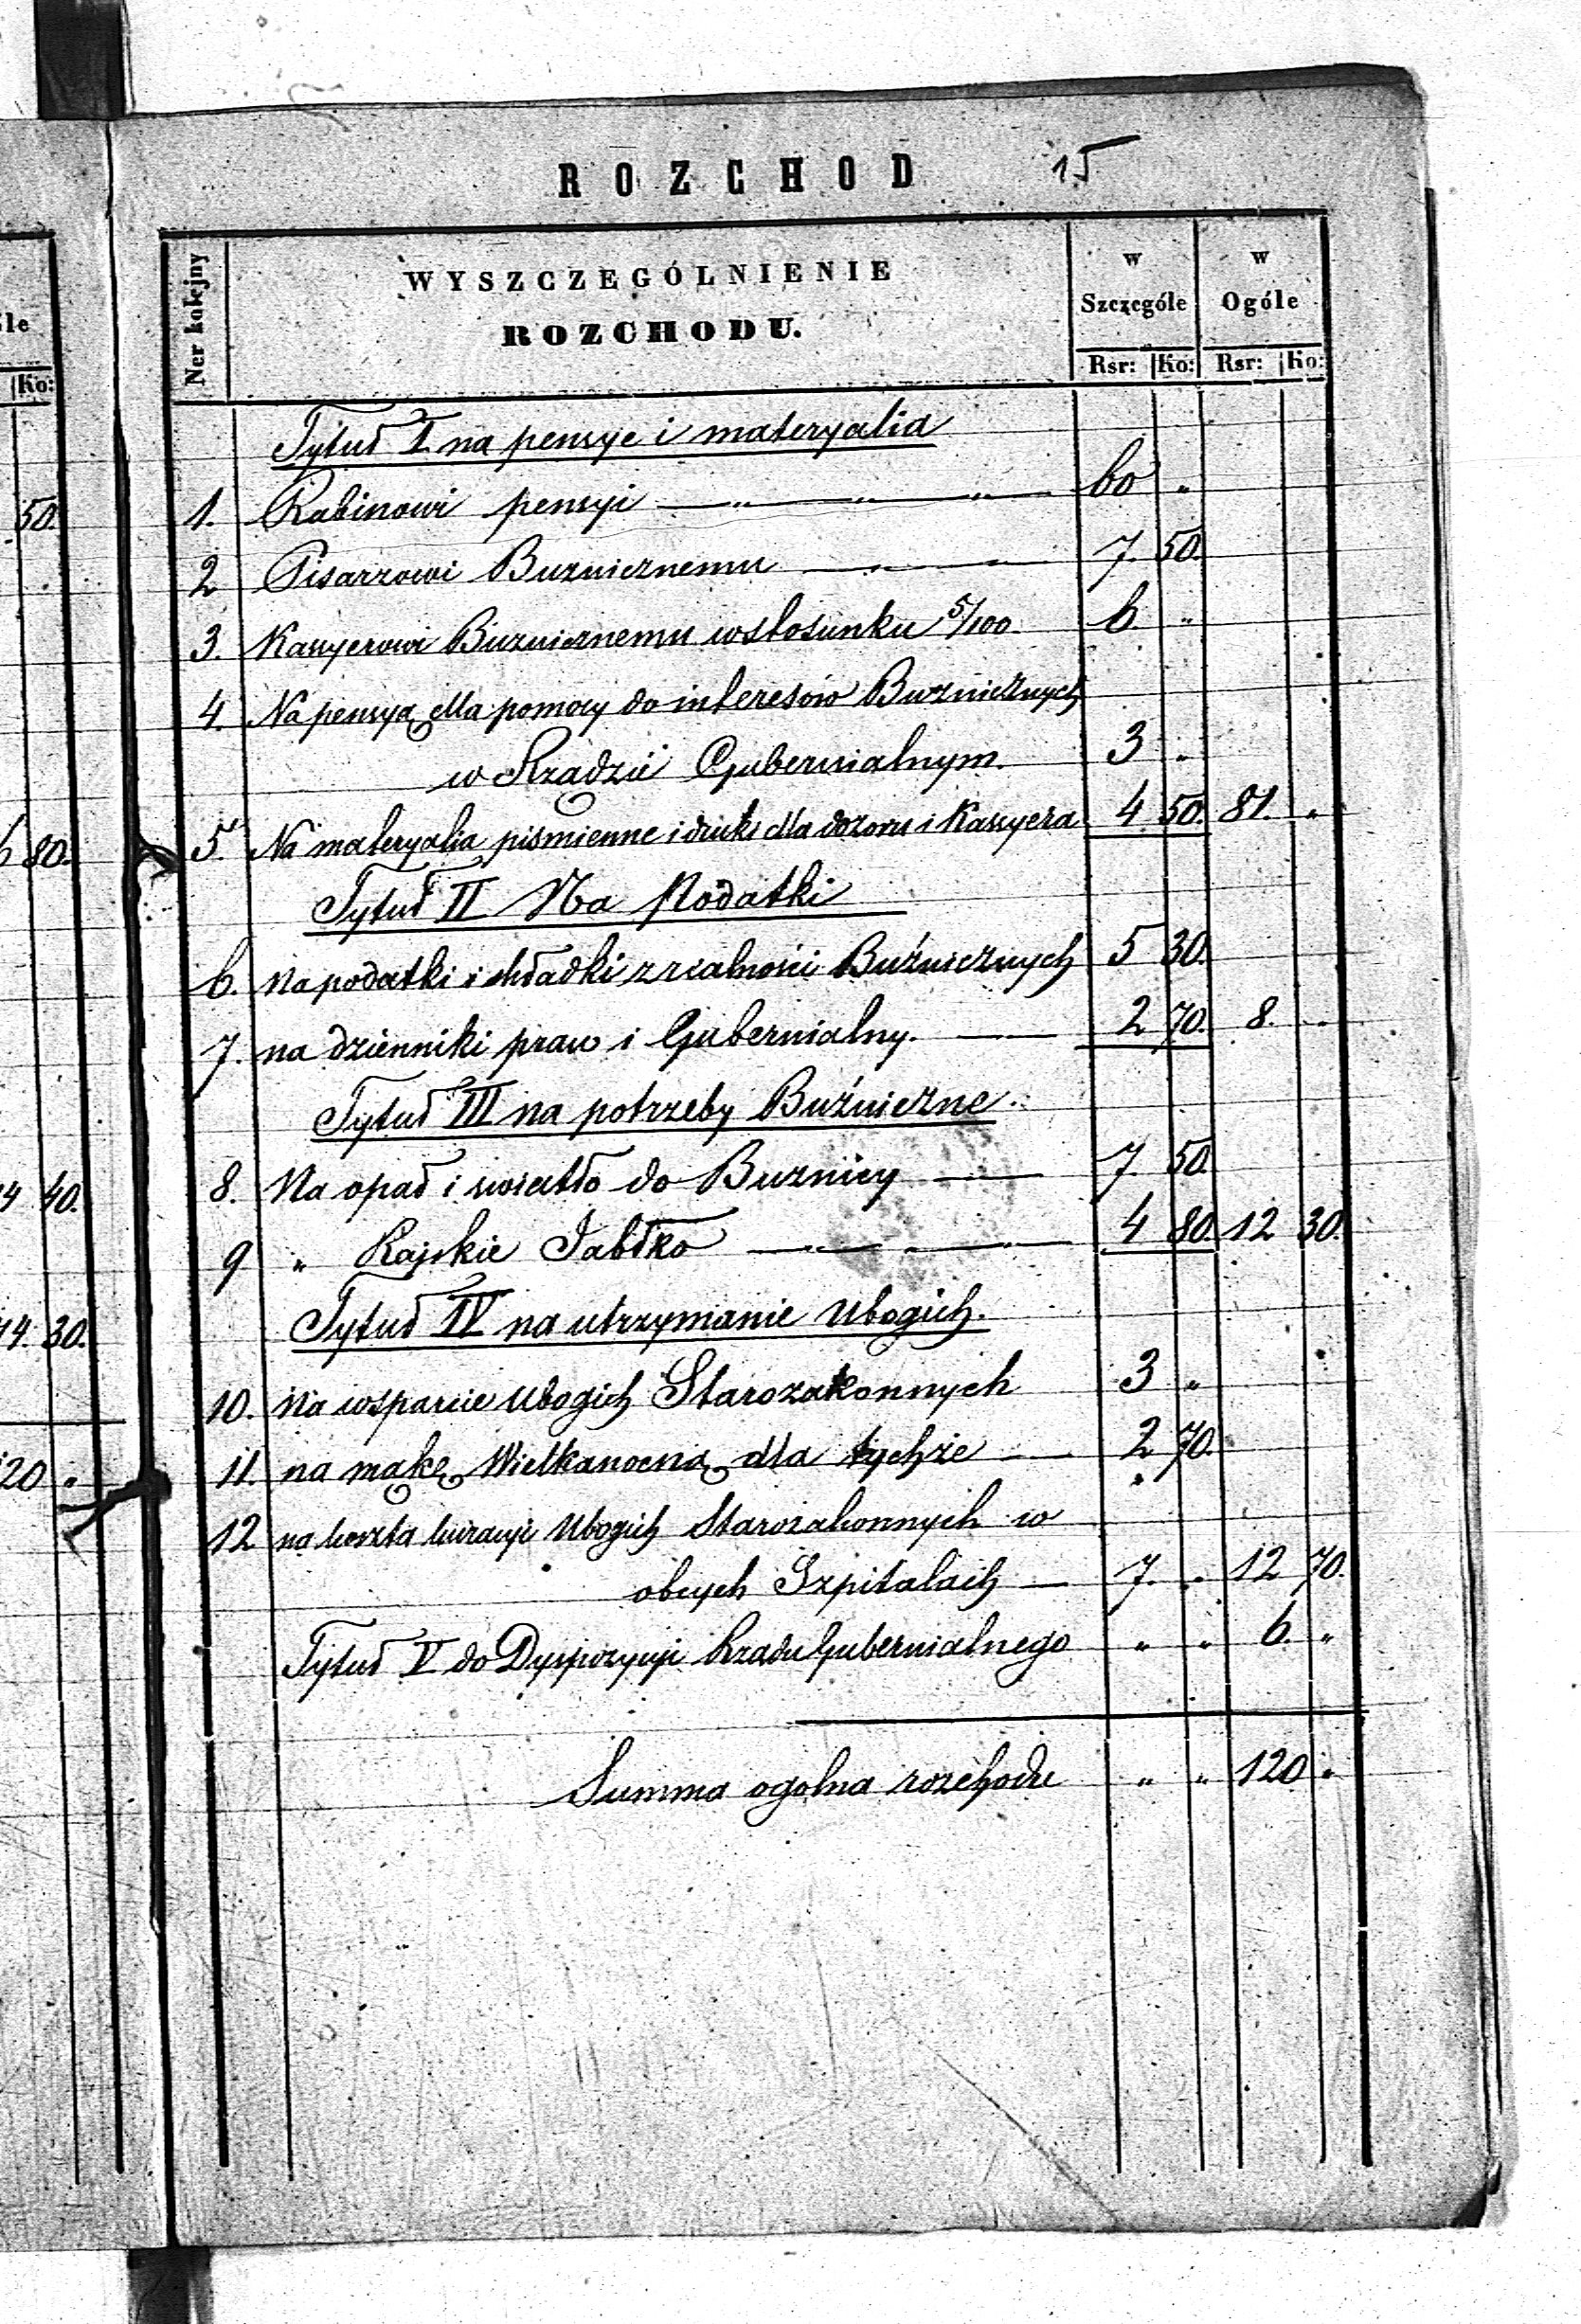 ROZCHOD 15
Ner kolejny
WYSZCZEGÓLNIENIE
ROZCHODU.
w Szczególe
w Ogóle
Rsr: Ko: Rsr: Ko:
Tytuł I na pensye i materyalia
1. Rabinowi pensyi — " — " — " — 60 "
2 Pisarzowi Buznicznemu — " — " — 7. 50.
3. Kassyerowi Buznicznemu w stosunku 5/100. 6 "
4. Na pensyą dla pomocy do interesów Buznicznych
w Rządzie Gubernialnym. 3 "
5. Na materyalia piśmienne i druki dla dozoru i Kassyera 4 50. 81. "
Tytuł II Na Podatki
6. Na podatki i składki z realności Buźnicznych 5 30.
7. na dzienniki praw i Gubernialny. — 2 70. 8. "
Tytuł III na potrzeby Buźniczne.
8. Na opał i swiatło do Buznicy — 7. 50
9 " Rajskie Jabłko — " — " — 4 80. 12 30.
Tytuł IV na utrzymanie Ubogich.
10. Na wsparcie Ubogich Starozakonnych 3 "
11. na mąkę Wielkanocną dla tychże — 2 70.
12 na koszta kuracyi Ubogich Starozakonnych w
obcych Szpitalach — 7. " 12 70.
Tytuł V do Dyspozycyi Rządu Gubernialnego " " 6. "
Summa ogolna rozchodu " " 120 "
le
Ko:
50.
6 80.
14 40.
14. 30.
120 "